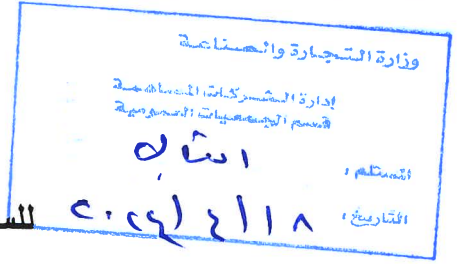 وزارة التجارة والصناعة
إدارة الشركات المساهمة
قسم الجمعيات العمومية
المستلم :
التاريخ : ١٨/٤/٢٠٢٤